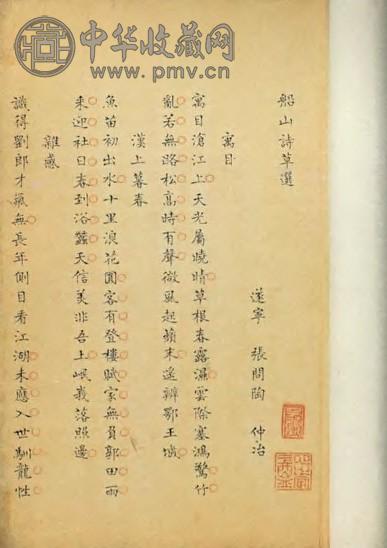 中华收藏网
www.pmv.cn
船山詩草選
遂寧 張問陶 仲冶
寓目
寓目滄江上天光屬曉晴草根春露濕雲際塞鴻驚竹
亂若無路松高時有聲微風起蘋末遙辨鄂王城
漢上暮春
魚苗初出水十里浪花圓客有登樓賦家無負郭田雨
来迎社日春到浴蠶天信美非吾土峨峩落照邊
雜感
識得劉郎才氣無長年側目看江湖未應入世馴龍性